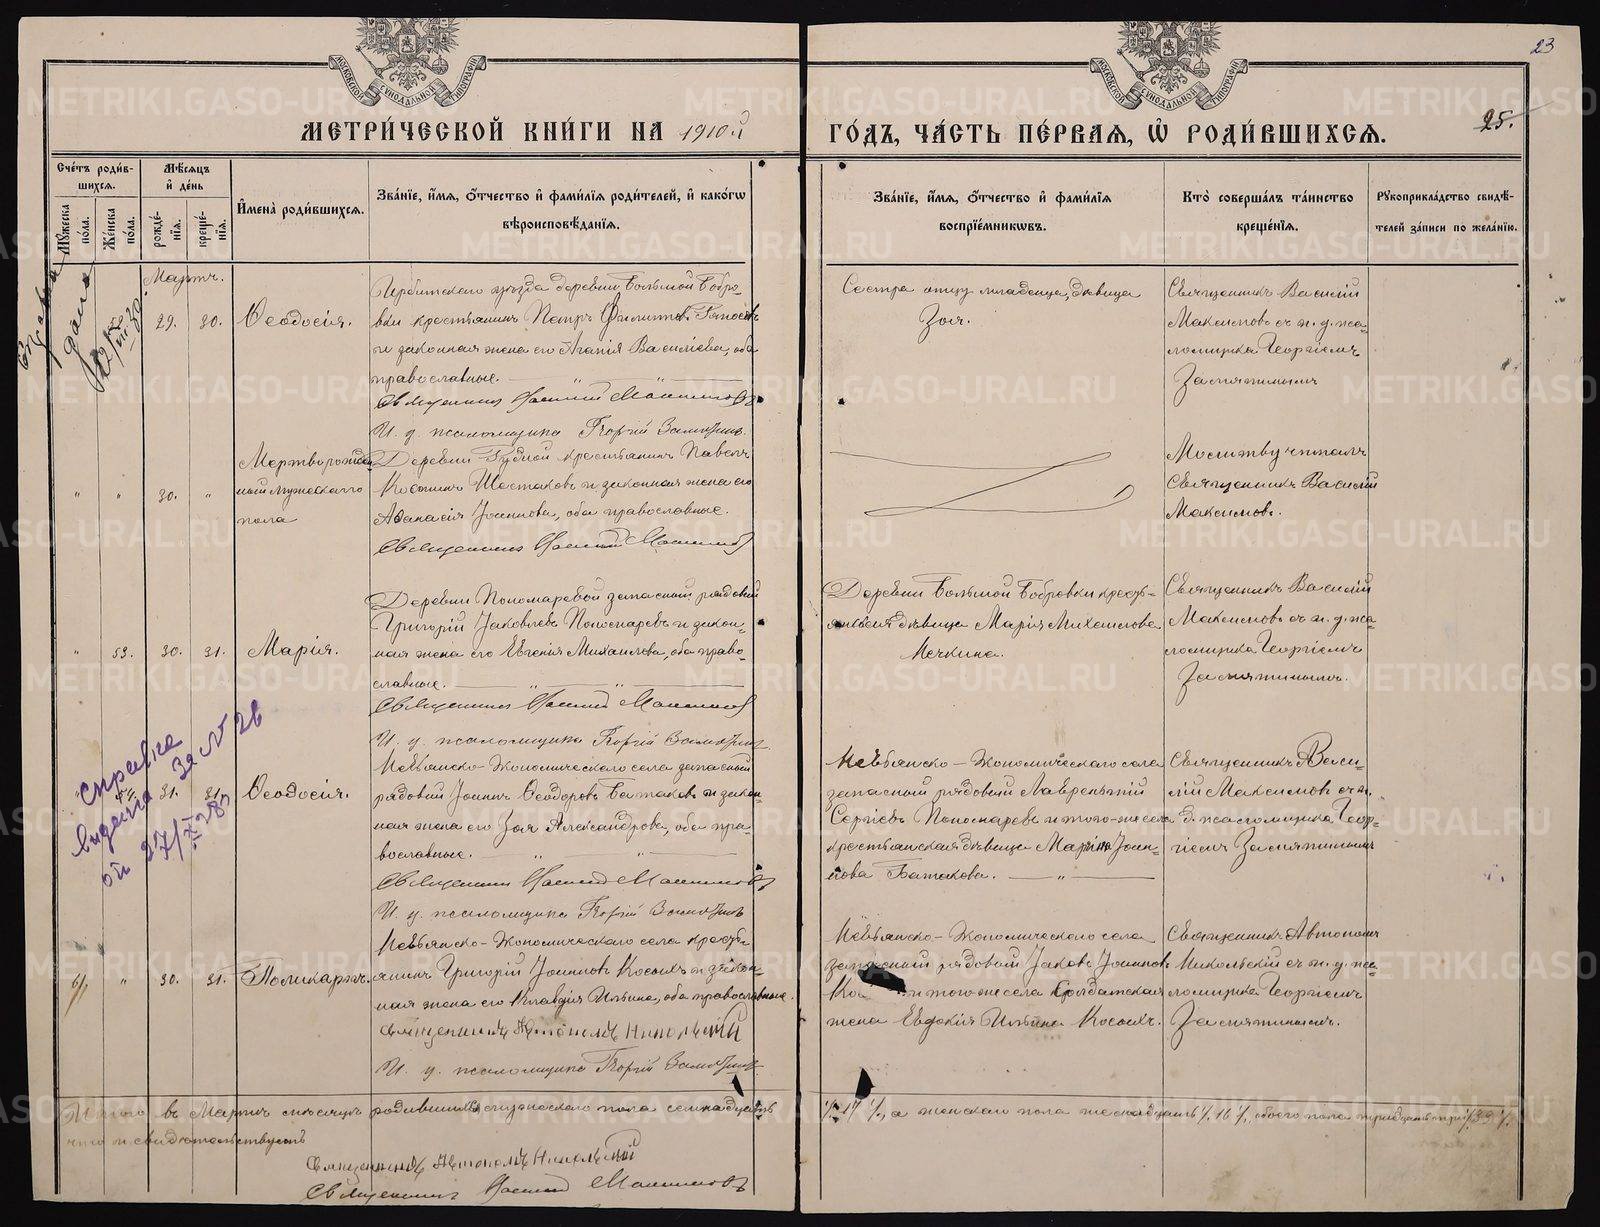 23
25.
МЕТРИЧЕСКОЙ КНИГИ НА 1910й
ГОДЪ, ЧАСТЬ ПЕРВАЯ, Ѡ РОДИВШИХСЯ.
Счетъ родившихся.
Мѣсяцъ и день
Мужеска пола.
Женска пола.
рожденія.
крещенія.
Имена родившихся.
Званіе, имя, отчество и фамилія родителей, и какогѡ вѣроисповѣданія.
Званіе, имя, отчество и фамилія воспріемникѡвъ.
Кто совершалъ таинство крещенія.
Рукоприкладство свидѣтелей записи по желанію.
Мартъ.
29. 30. Ѳеодосія.
Ирбитскаго уѣзда деревни Большой Бобро-
вки крестьянинъ Петръ Филиппов
и законная жена его Агапія Васильева, оба
православные.
Священникъ Василий Максимовъ
И. д. псаломщика Георгій Замятинъ
Сестра отцу младенца, дѣвица
Зоя.
Священникъ Василій
Максимовъ съ и. д. пса-
ломщика Георгіемъ
Замятинымъ
" " 30. "
Мертворожден
ный мужескаго
пола
Деревни Рудной крестьянинъ Павелъ
Шестаковъ и законная жена его
Аѳанасія Іоаннова, оба православные.
Священникъ Василий Максимовъ
Молитву читалъ
Священникъ Василій
Максимовъ.
" 53. 30. 31. Марія.
Деревни Пономаревой запасный рядовой
Григорій Іаковлевъ Пономаревъ и закон-
ная жена его Евгенія Михаилова, оба право-
славные.
Священникъ Василий Максимовъ
И. д. псаломщика Георгій Замятинъ
Деревни Большой Бобровки кресть-
янская дѣвица Марія Михаилова
Мечкина.
Священникъ Василій
Максимовъ съ и. д. пса-
ломщика Георгіемъ
Замятинымъ.
справка
выдана за № 26
от 27/X
31. 31. Ѳеодосія.
Невьянско-Экономическаго села запасный
рядовой Іоаннъ Ѳеодоровъ Батаковъ и закон-
ная жена его Зоя Александрова, оба пра-
вославные.
Священникъ Василий Максимовъ
И. д. псаломщика Георгій Замятинъ
Невьянско-Экономическаго села
запасный рядовой Лаврентій
Сергіевъ Пономаревъ и того-же села
крестьянская дѣвица Марина Іоан-
нова Батакова.
Священникъ Васи-
лій Максимовъ съ и.
д. псаломщика Геор-
гіемъ Замятинымъ
" 30. 31. Поликарпъ.
Невьянско-Экономическаго села кресть-
янинъ Григорій Іоанновъ Косыхъ и закон-
ная жена его Клавдія Ильина, оба православные.
Священникъ Автономъ Никольскій
И. д. псаломщика Георгій Замятинъ
Невьянско-Экономическаго села
запасный рядовой Іаковъ Іоанновъ
Ко и того же села солдатская
жена Евдокія Ильина Косыхъ.
Священникъ Автономъ
Никольскій съ и. д. пса-
ломщика Георгіемъ
Замятинымъ.
Итого въ Мартѣ мѣсяцѣ родившихся мужескаго пола семнадцать 17, а женскаго пола шестнадцать 16, обоего пола тридцать три 33,
что и свидѣтельствуемъ
Священникъ Автономъ Никольскій
Священникъ Василий Максимовъ
METRIKI.GASO-URAL.RU